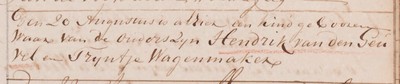 Den 20 Augustus is alhier een kind gebooren
Waar van de ouders zyn Hendrik van den Heu
vel en Tryntje Wagenmaker